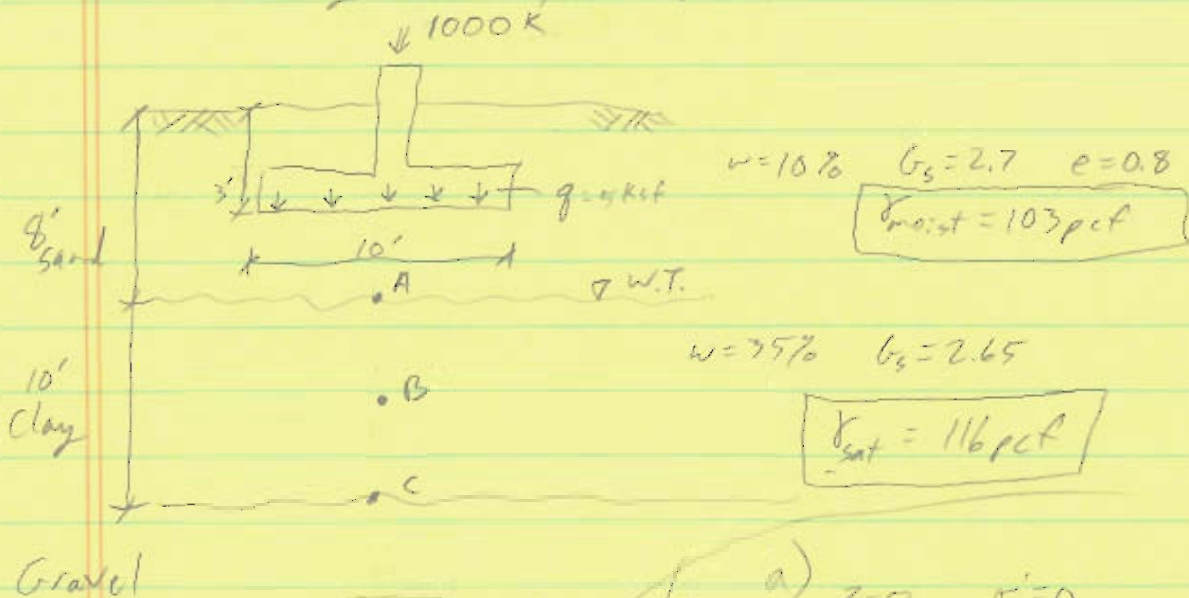 1000 K
3'
q = 5 ksf
w=10% Gs=2.7 e=0.8
γmoist = 103 pcf
8'
sand
10'
A
W.T.
w=35% Gs=2.65
10'
Clay
B
γsat = 116 pcf
C
Gravel
a)
z=0 σ'=0